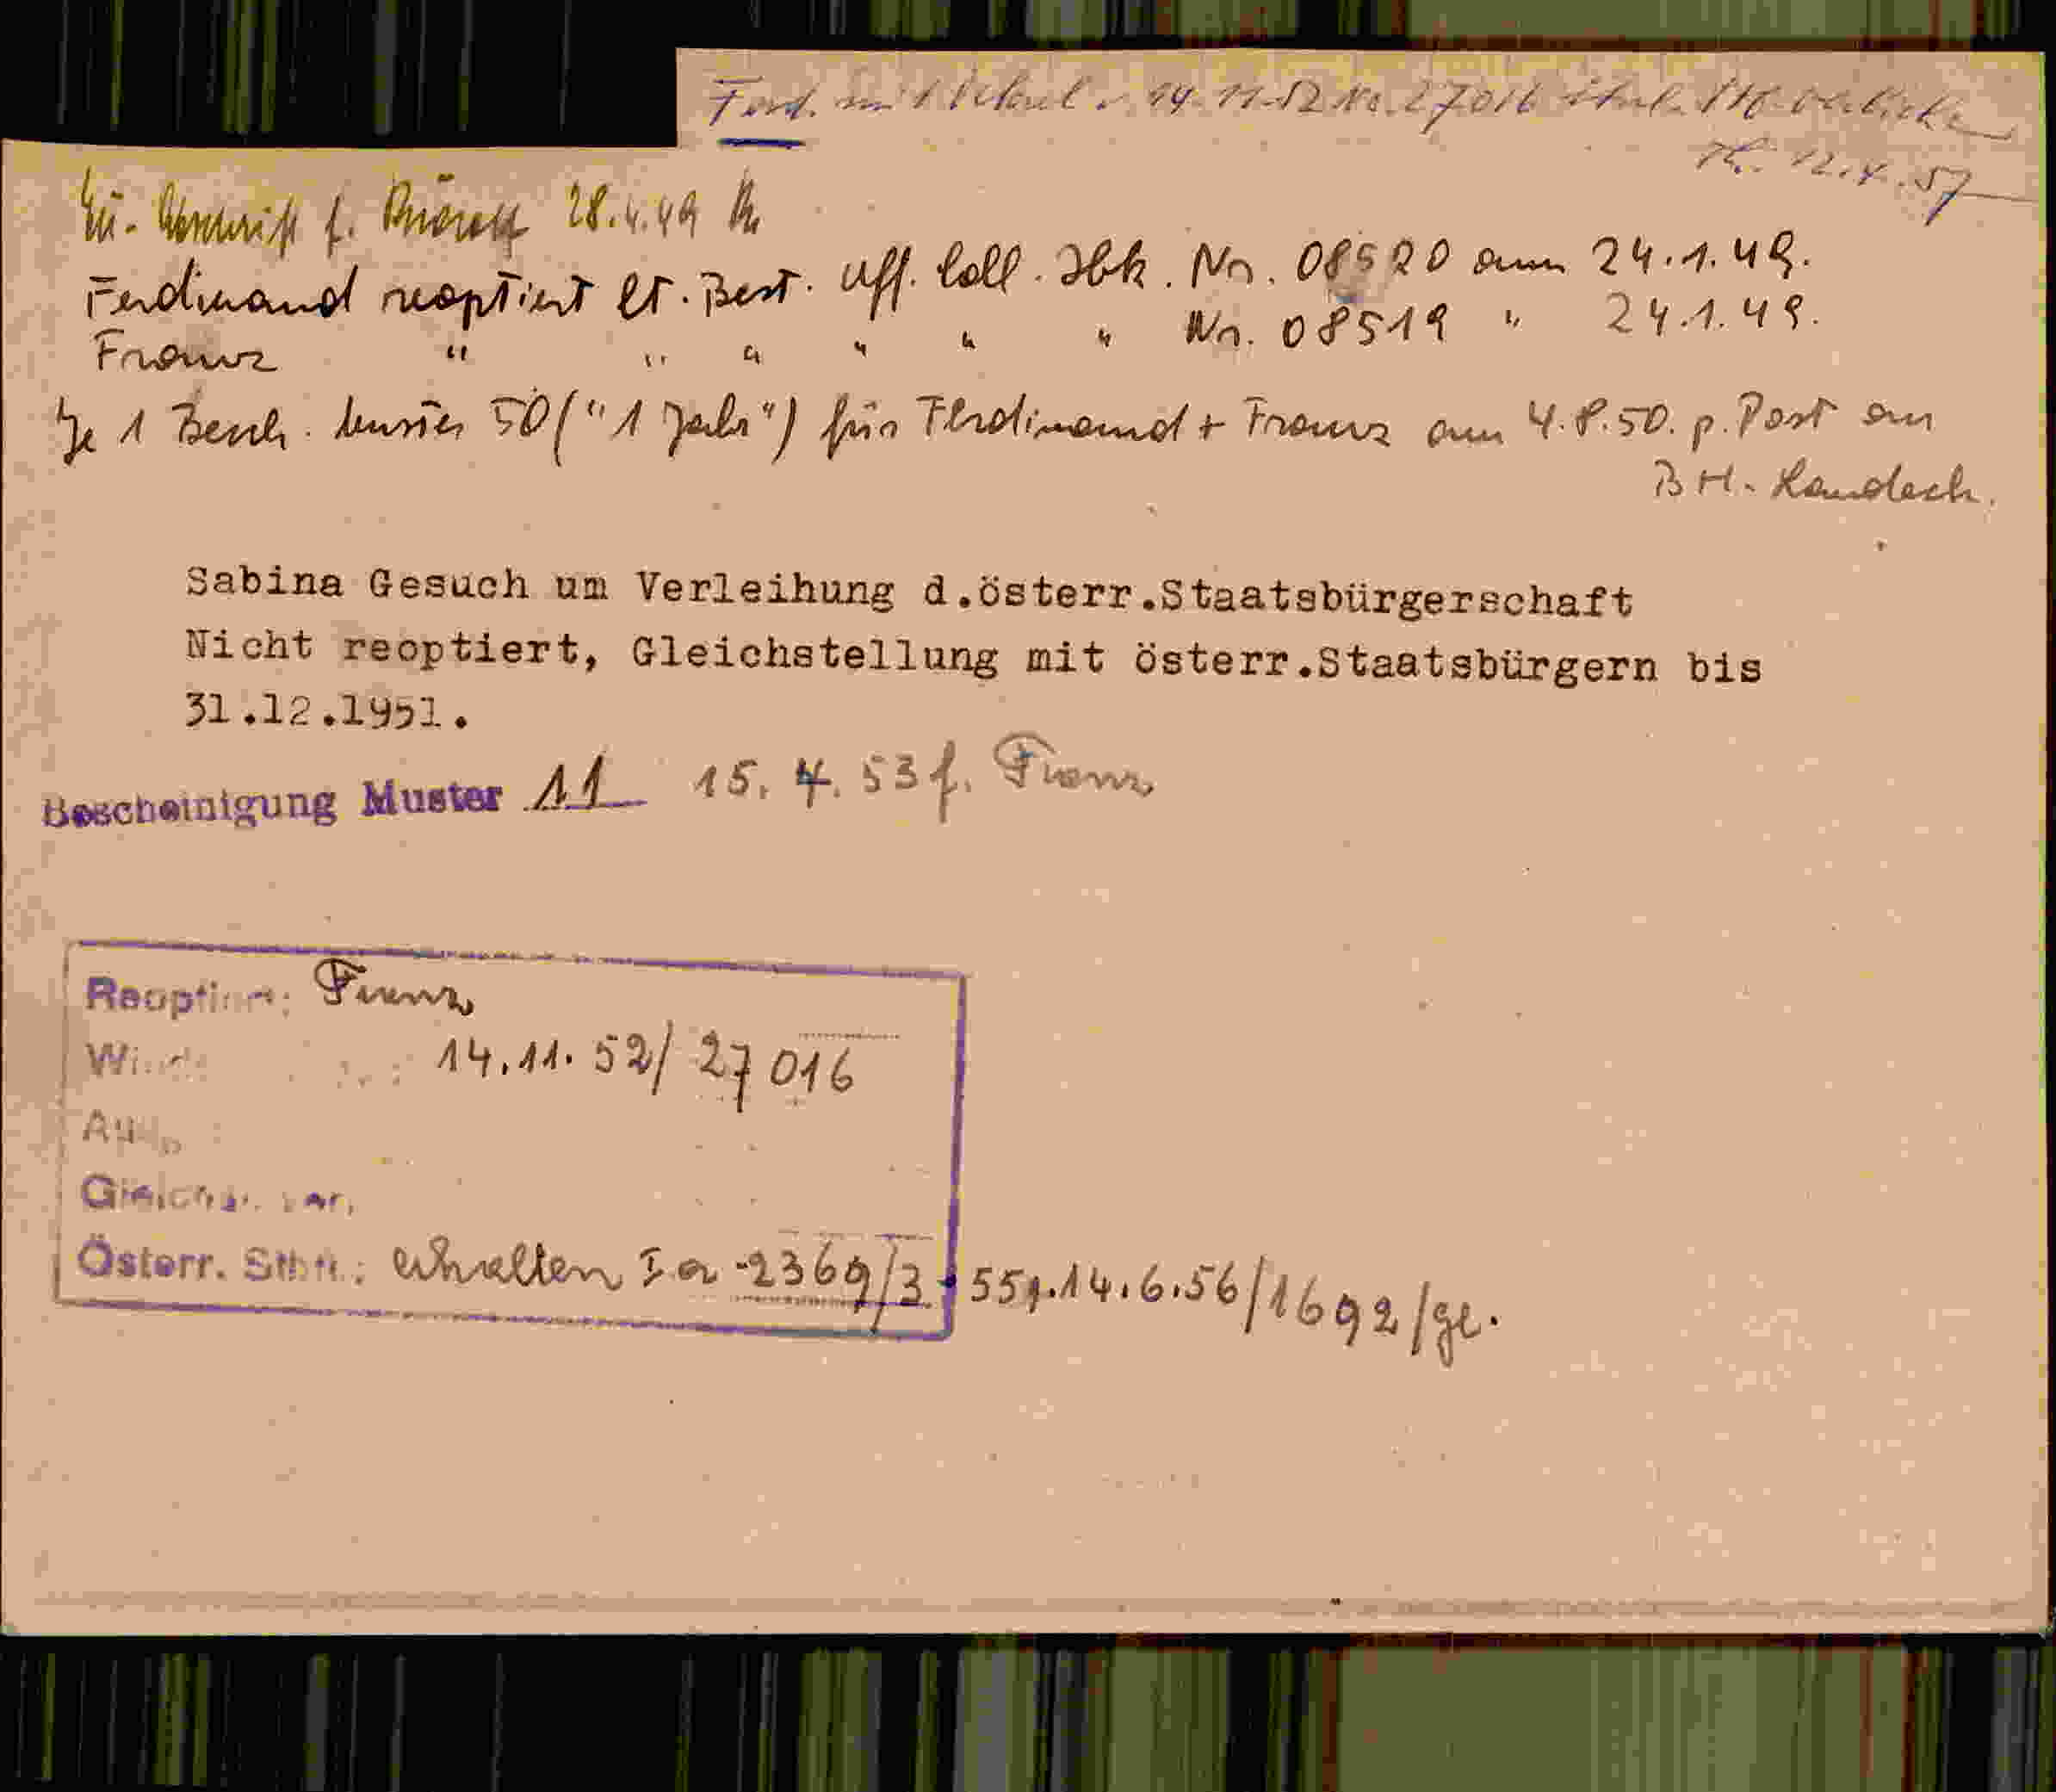 Ferd. mit Dekret v. 14.11.52 No. 27016
12.4.57
28.4.49
Ferdinand reoptiert lt. Best. Uff. Coll. Ibk. Nr. 08520 am 24.1.49.
Franz " " " " " " Nr. 08519 " 24.1.49.
Je 1 Besch. Muster 50 ("1 Jahr") für Ferdinand + Franz am 4.8.50. p. Post an
BH. Landeck.
Sabina Gesuch um Verleihung d.österr.Staatsbürgerschaft
Nicht reoptiert, Gleichstellung mit österr.Staatsbürgern bis
31.12.1951.
Bescheinigung Muster 11 15. 4. 53 f. Franz
Reoption: Franz
14.11.52/27016
Österr. Stb.: erhalten I a -2369/3-55 v. 14.6.56/1692/ge.